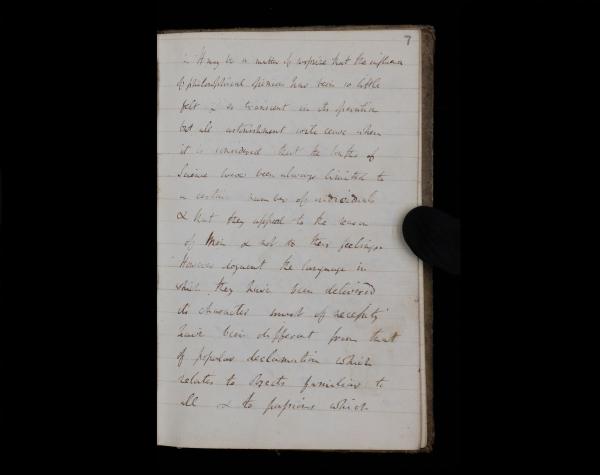 7
- It may be a matter of surprise that the influence
of philosophical opinions has been so little
felt & so transient in its operation
but all astonishment will cease when
it is considered that the truths of
Science have been always limited to
a certain number of individuals
& that they appeal to the reason
of Men & not to their feelings.
However eloquent the language in
which they have been delivered
its character must of necessity
have been different from that
of popular declamation which
relates to objects familiar to
all & to passions which